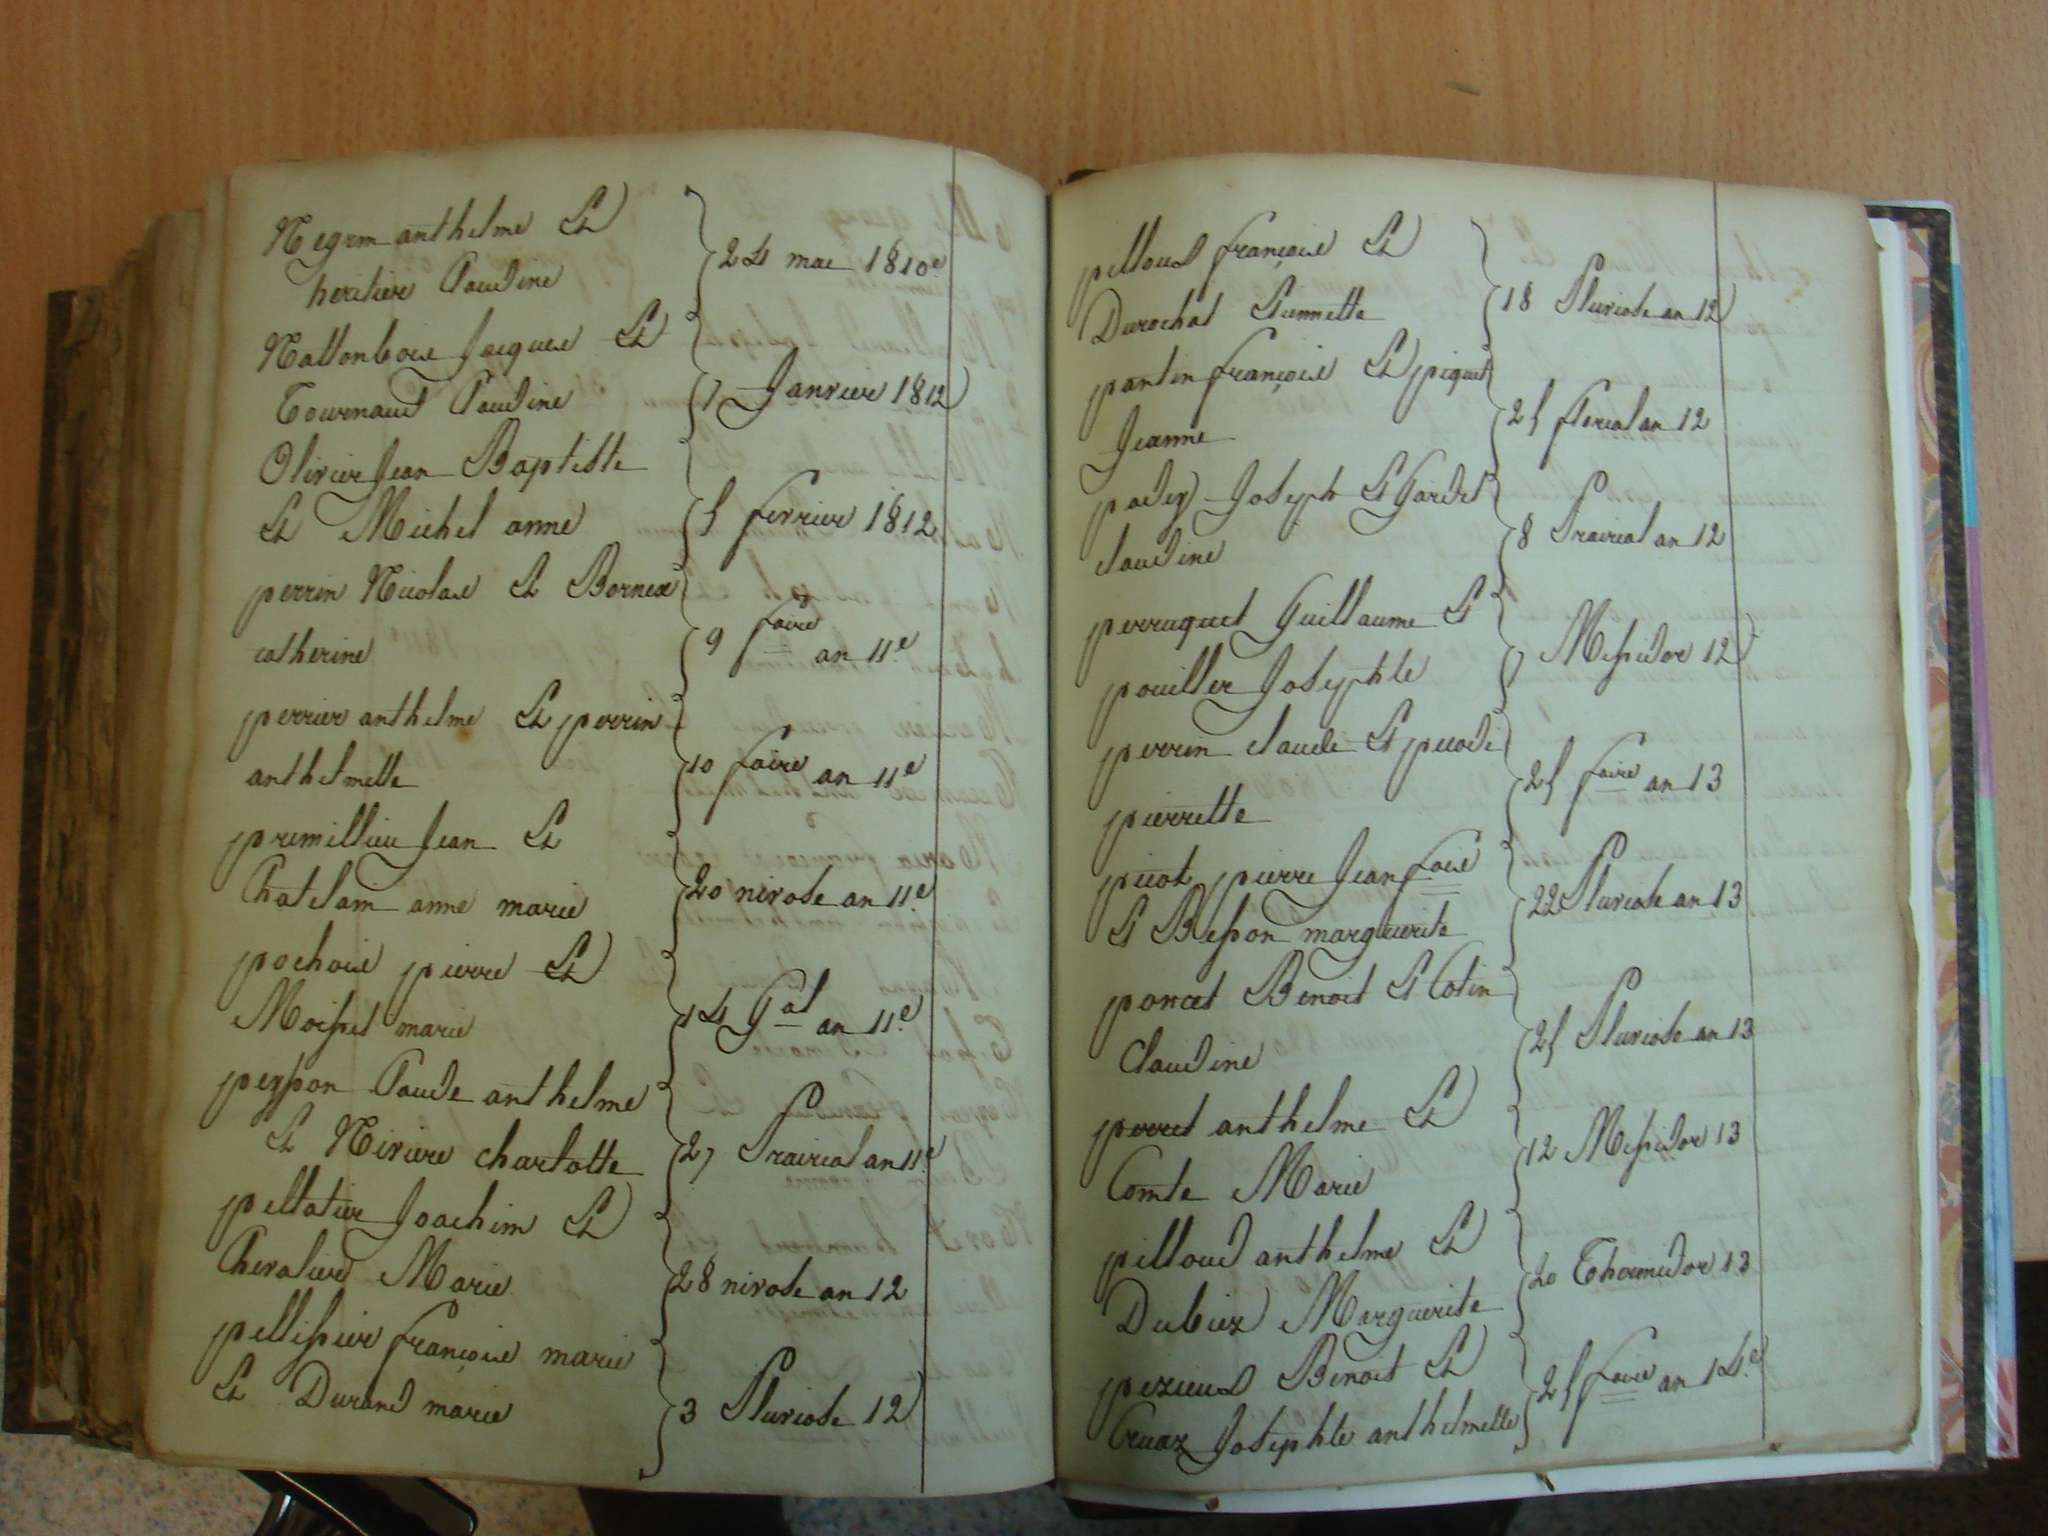 Negrin anthelme Et
heritier Claudine
24 mai 1810.e
Nattonbois Jacques Et
Tournaud Claudine
7 Janvier 1812
Olivier Jean Baptiste
Et Michel anne
5 fevrier 1812
perrin Nicolas Et Bornex
catherine
9 f.aire an 11.e
perrier anthelme Et perrin
anthelmette
10 f.aire an 11.e
premillieu Jean Et
Chatelain anne marie
20 nivose an 11.e
pochois pierre Et
Moisset marie
14 G.al an 11.e
peysson Claude anthelme
Et Nivière charlotte
27 Prairial an 11.e
pellatier Joachim Et
Chevalier Marie
28 nivose an 12
pellissier françois marie
Et Durand marie
3 Pluviose 12
pilloud françois Et
Durochat Pierrette
18 Pluviose an 12
pantin françois Et piquet
Jeanne
25 floreal an 12
padey Joseph Et Gardet
claudine
8 Prairial an 12
perruquet Guillaume Et
pouiller Josephte
7 Messidor 12
perrin claude Et picodi
pierrette
25 f.aire an 13
picot pierre Jean f.ois
Et Besson marguerite
22 Pluviose an 13
poncet Benoit Et Cotin
Claudine
25 Pluviose an 13
perret anthelme Et
Comte Marie
12 Messidor 13
pilloud anthelme Et
Dubiez Marguerite
20 Thermidor 13
pezieux Benoit Et
Cruaz Josephte anthelmette
25 f.aire an 14.e